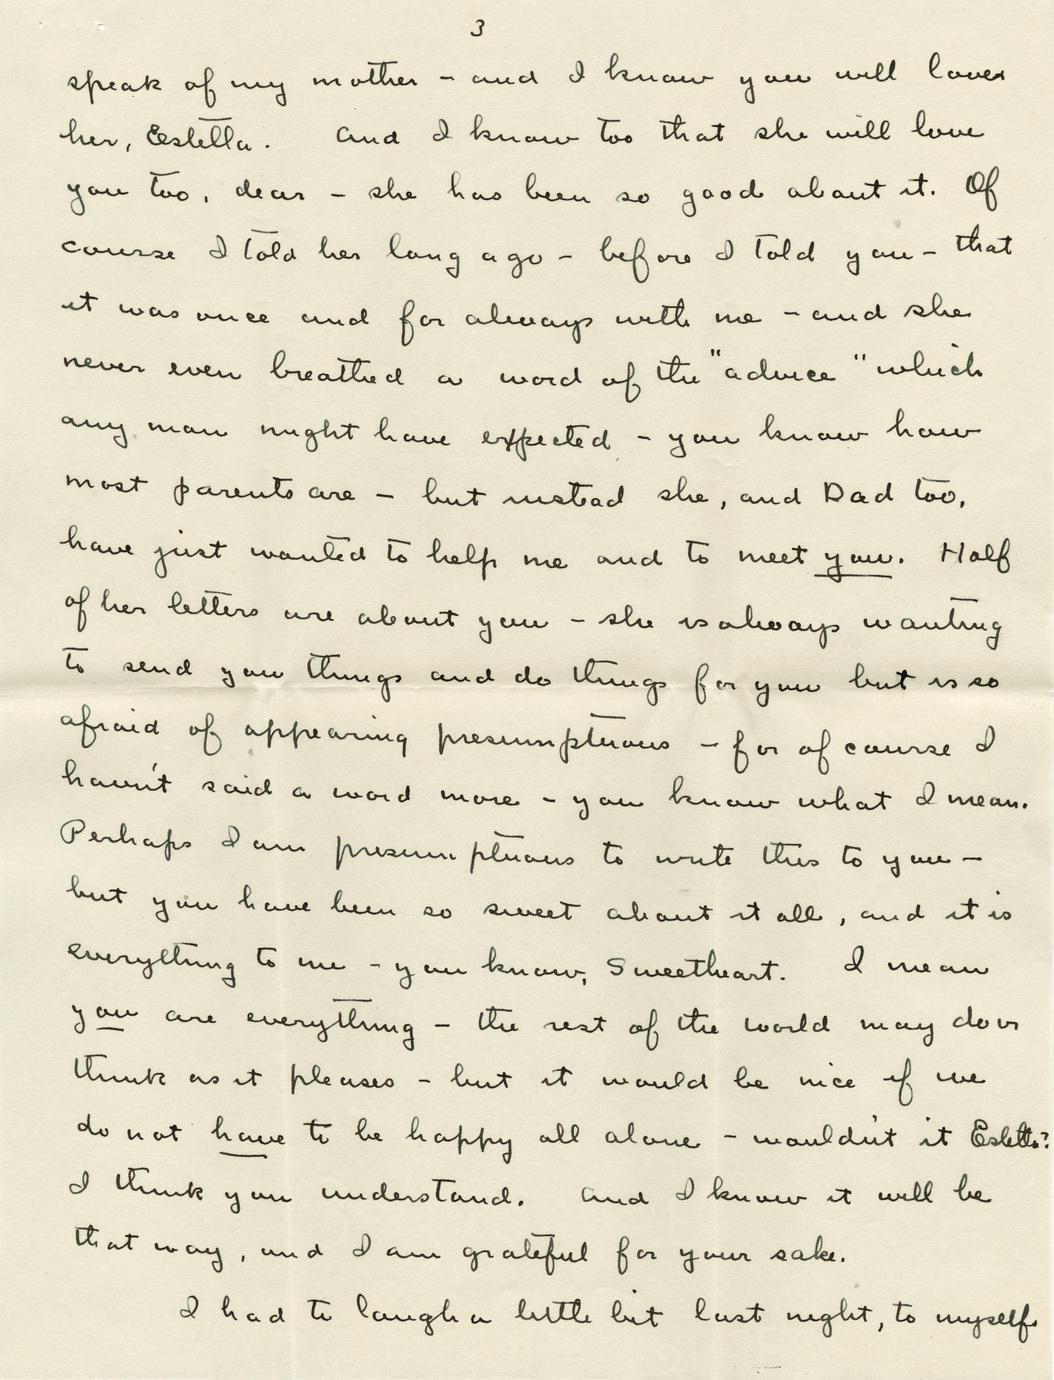 3
speak of my mother - and I know you will love
her, Estella. And I know too that she will love
you too, dear - she has been so good about it. Of
course I told her long ago - before I told you - that
it was once and for always with me - and she
never even breathed a word of the "advice" which
any man might have expected - you know how
most parents are - but instead she, and Dad too,
have just wanted to help me and to meet you. Half
of her letters are about you - she is always wanting
to send you things and do things for you but is so
afraid of appearing presumptuous - for of course I
havn't said a word more - you know what I mean.
Perhaps I am presumptuous to write this to you -
but you have been so sweet about it all, and it is
everything to me - you know, Sweetheart. I mean
you are everything - the rest of the world may do or
think as it pleases - but it would be nice if we
do not have to be happy all alone - wouldn't it Estella?
I think you understand. And I know it will be
that way, and I am grateful for your sake.
I had to laugh a little bit last night, to myself